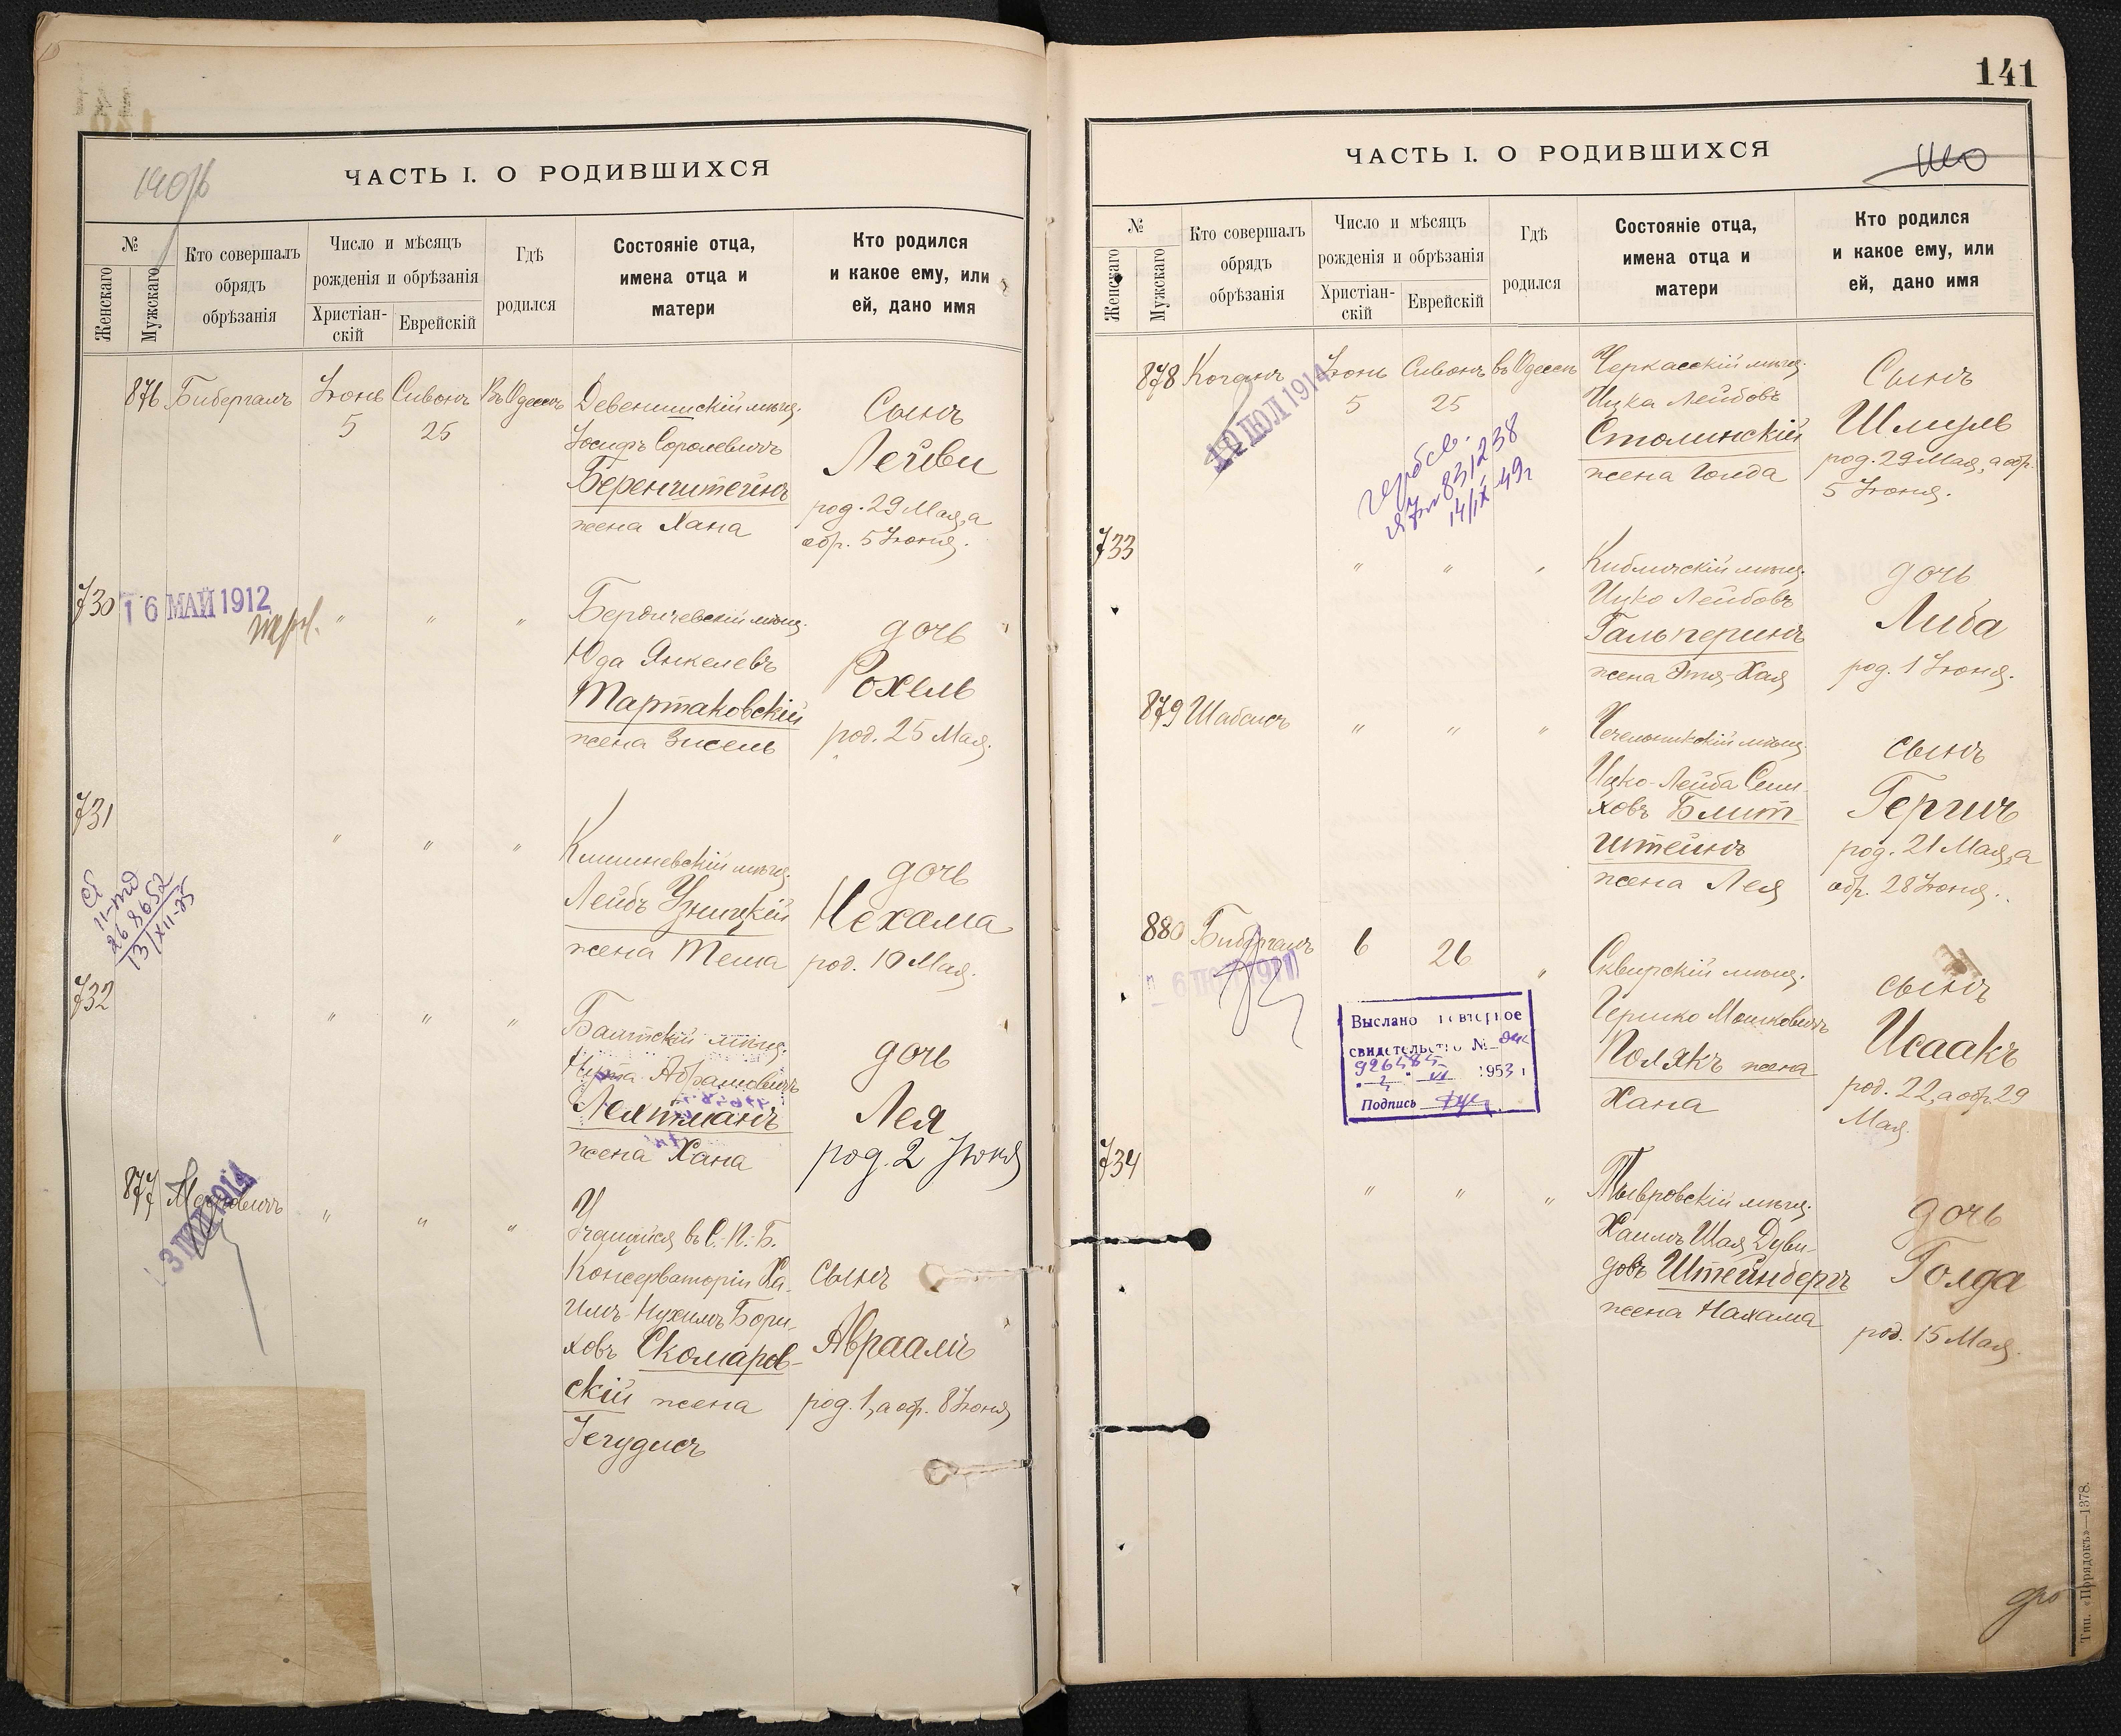 140/6
ЧАСТЬ I. О РОДИВШИХСЯ
№
Женскаго
Мужскаго
Кто совершалъ
обрядъ
обрѣзанія
Число и мѣсяцъ
рожденія и обрѣзанія
Христіан-
скій
Еврейскій
Гдѣ
родился
Состояніе отца,
имена отца и
матери
Кто родился
и какое ему, или
ей, дано имя
876 Бибергалъ Іюнь 5 Сивонъ 25 Въ Одессѣ
Девенишскій мѣщ.
Іосифъ Соролевичъ
Беренштейнъ
жена Хана
Сынъ
Лейви
род. 29 Мая, а
обр. 5 Іюня.
730
16 МАЙ 1912
" " "
Бердичевскій мѣщ.
Юда Янкелевъ
Мартаковскій
жена Зисель
дочь
Рохель
род. 25 Мая.
731
" " "
Кишиневскій мѣщ.
Лейбъ Узницкій
жена Теша
дочь
Нехама
род. 10 Мая.
268652
13/XII-25
732
" " "
Балтскій мѣщ.
Абрамовичъ
Лейтманъ
жена Хана
дочь
Лея
род. 2 Іюня
877
1914
" " "
Учащійся въ С.-П.-Б.
Консерваторіи Ха-
имъ-Нухимъ Бори-
ховъ Скомаров-
скій жена
Іегудисъ
сынъ
Авраамъ
род. 1, а обр. 8 Іюня
141
ЧАСТЬ I. О РОДИВШИХСЯ
№
Женскаго
Мужскаго
Кто совершалъ
обрядъ
обрѣзанія
Число и мѣсяцъ
рожденія и обрѣзанія
Христіан-
скій
Еврейскій
Гдѣ
родился
Состояніе отца,
имена отца и
матери
Кто родился
и какое ему, или
ей, дано имя
878 Коганъ Іюнь 5 Сивонъ 25 въ Одессѣ
ІЮЛ 1914
831238
14/IX 49г
Черкасскій мѣщ.
Ицка Лейбовъ
Столинскій
жена Голда
Сынъ
Шмуль
род. 29 Мая, а обр.
5 Іюня.
733
" " "
Кибличскій мѣщ.
Ицко Лейбовъ
Гальперинъ
жена Этя-Хая
дочь
Либа
род. 1 Іюня.
879 Шабсисъ " " "
Чечельникскій мѣщ.
Ицко-Лейба Сим-
ховъ Блит-
штейнъ
жена Лея
сынъ
Гершъ
род. 21 Мая, а
обр. 28 Іюня.
880 Бибергалъ 6 26 "
Выслано повторное
свидетельство №
926485
1953 г
Подпись
Сквирскій мѣщ.
Гершко Мошковичъ
Полякъ жена
Хана
сынъ
Исаакъ
род. 22, а обр. 29
Мая.
734
" " "
Тывровскій мѣщ.
Хаимъ Шая Дуви-
довъ Штейнбергъ
жена Нахама
дочь
Голда
род. 15 Мая.
Тип. «Порядокъ»—1378.